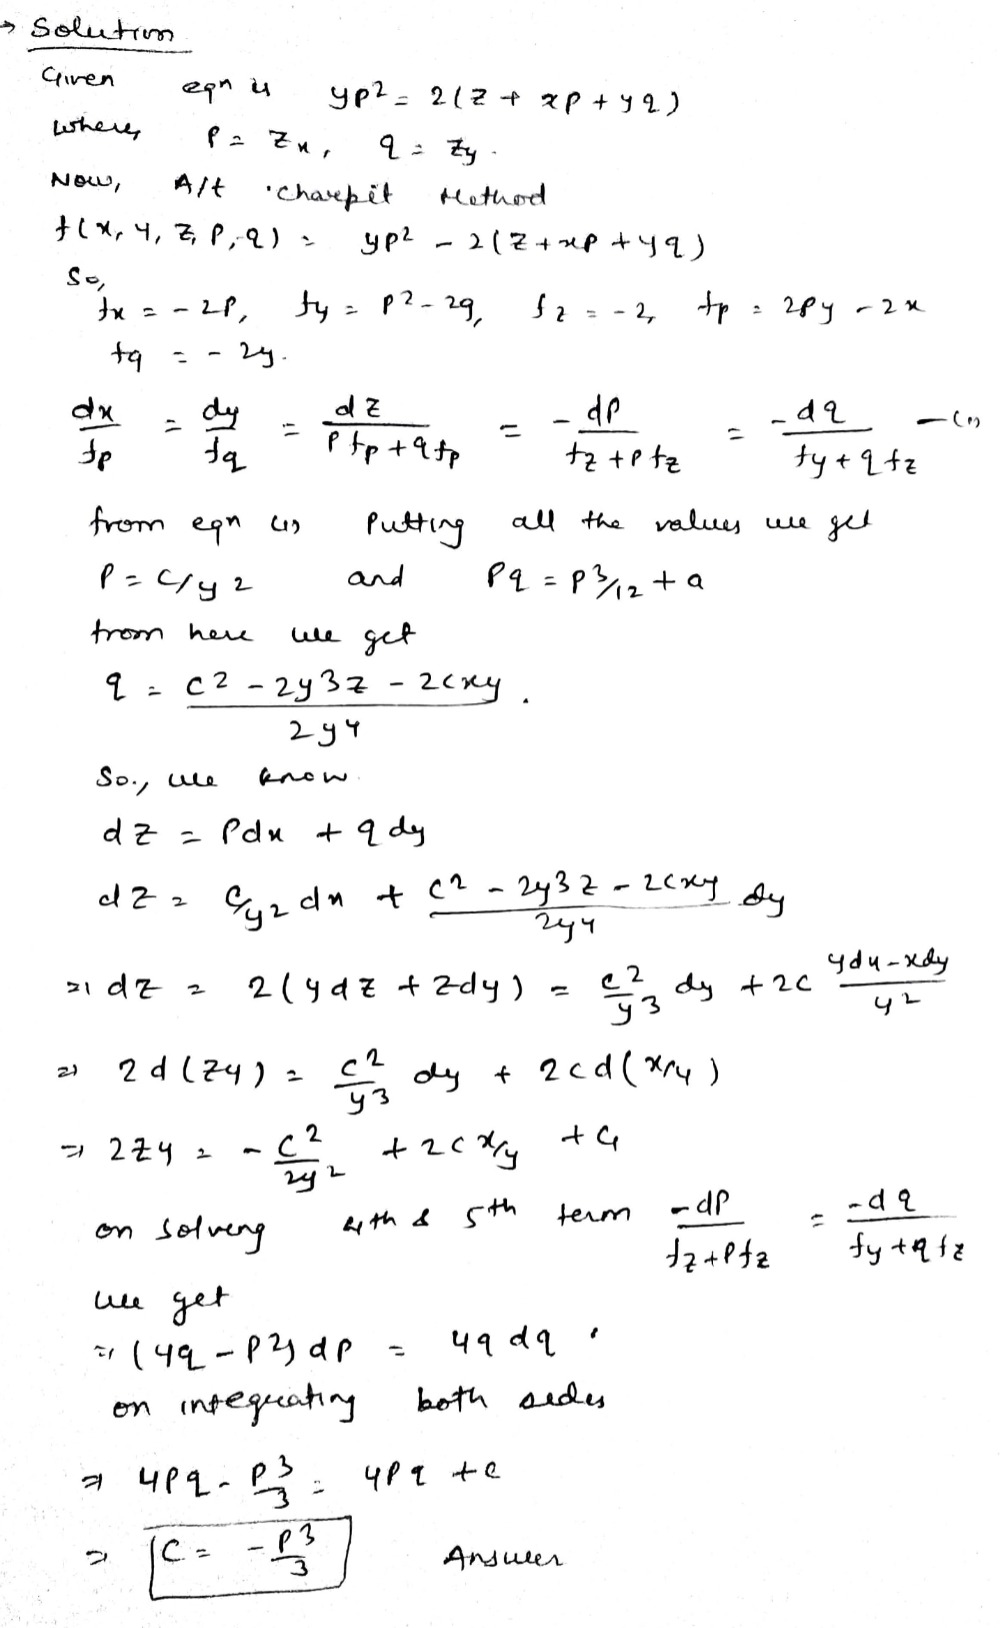 → Solution
Given eqn is yp² = 2(z + xp + yq)
where, p = zx, q = zy.
Now, A/t Charpit Method
f(x, y, z, p, q) = yp² - 2(z + xp + yq)
So,
fx = -2p, fy = p² - 2q, fz = -2, fp = 2py - 2x
fq = -2y.
dx/fp = dy/fq = dz/(p fp + q fp) = -dp/(fz + p fz) = -dq/(fy + q fz) —(1)
from eqn (1) Putting all the values we get
P = c/y2 and Pq = p3/12 + a
from here we get
q = (c2 - 2y3z - 2cxy)/2y4.
So., we know.
dz = Pdx + q dy
dz = c/y2 dx + (c2 - 2y3z - 2cxy)/2y4 dy
⇒ dz = 2(ydz + zdy) = c2/y3 dy + 2c (ydx - xdy)/y2
⇒ 2d(zy) = c2/y3 dy + 2cd(x/y)
⇒ 2zy = -c2/2y2 + 2c x/y + c1
on solveng 4th & 5th term -dp/(fz + pfz) = -dq/(fy + qfz)
we get
⇒ (4q - p2) dp = 4q dq
on integreating both sedes
⇒ 4pq - p3/3 = 4pq + c
⇒ C = -p3/3 Answer